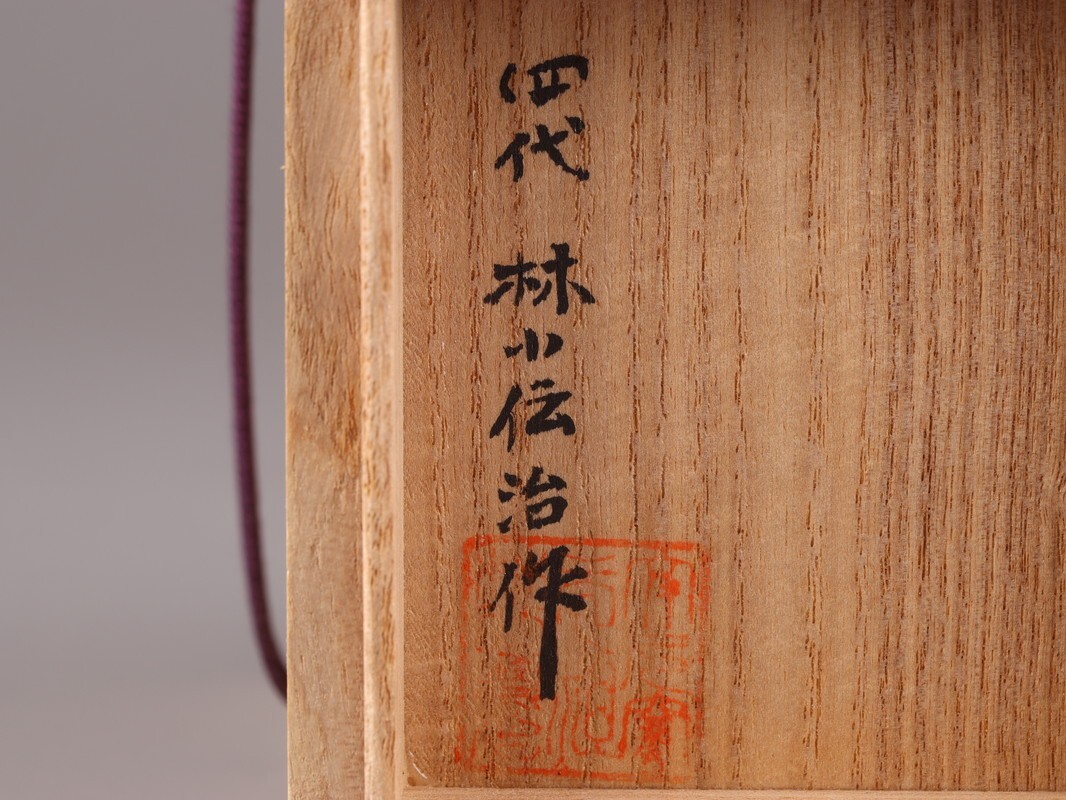 四代 林小伝治作